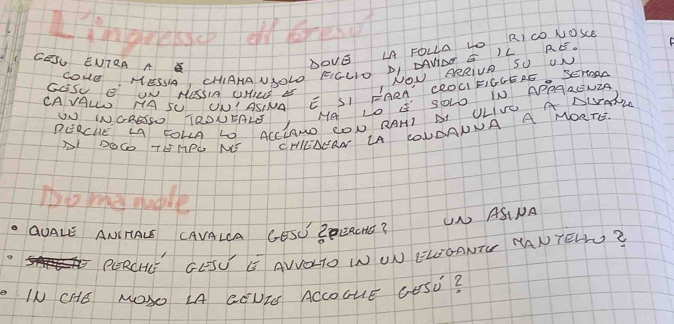 L'ingresso di Gesù
GESÙ ENTRA A DOVE LA FOLLA LO RICONOSCE
COME MESSIA, CHIAMANDOLO FIGLIO DI DAVIDE E IL RE.
GESÙ È UN MESSIA UMILE E NON ARRIVA SU UN
CAVALLO MA SU UN'ASINA E SI FARÀ CROCIFIGGERE. SEMBRA
UN INGRESSO TRONFALE, MA LO È SOLO IN APPARENZA
PERCHÉ LA FOLLA LO ACCLAMO CON RAMI DI ULIVO A DISTANZA
DI POCO TEMPO NE CHIEDERÀ LA CONDANNA A MORTE.
Domande
• QUALE ANIMALE CAVALCA GESÙ? PERCHÉ? UN ASINA
• PERCHÉ GESÙ È AVVOLTO IN UN ELEGANTE MANTELLO?
• IN CHE MODO LA GENTE ACCOGLIE GESÙ?